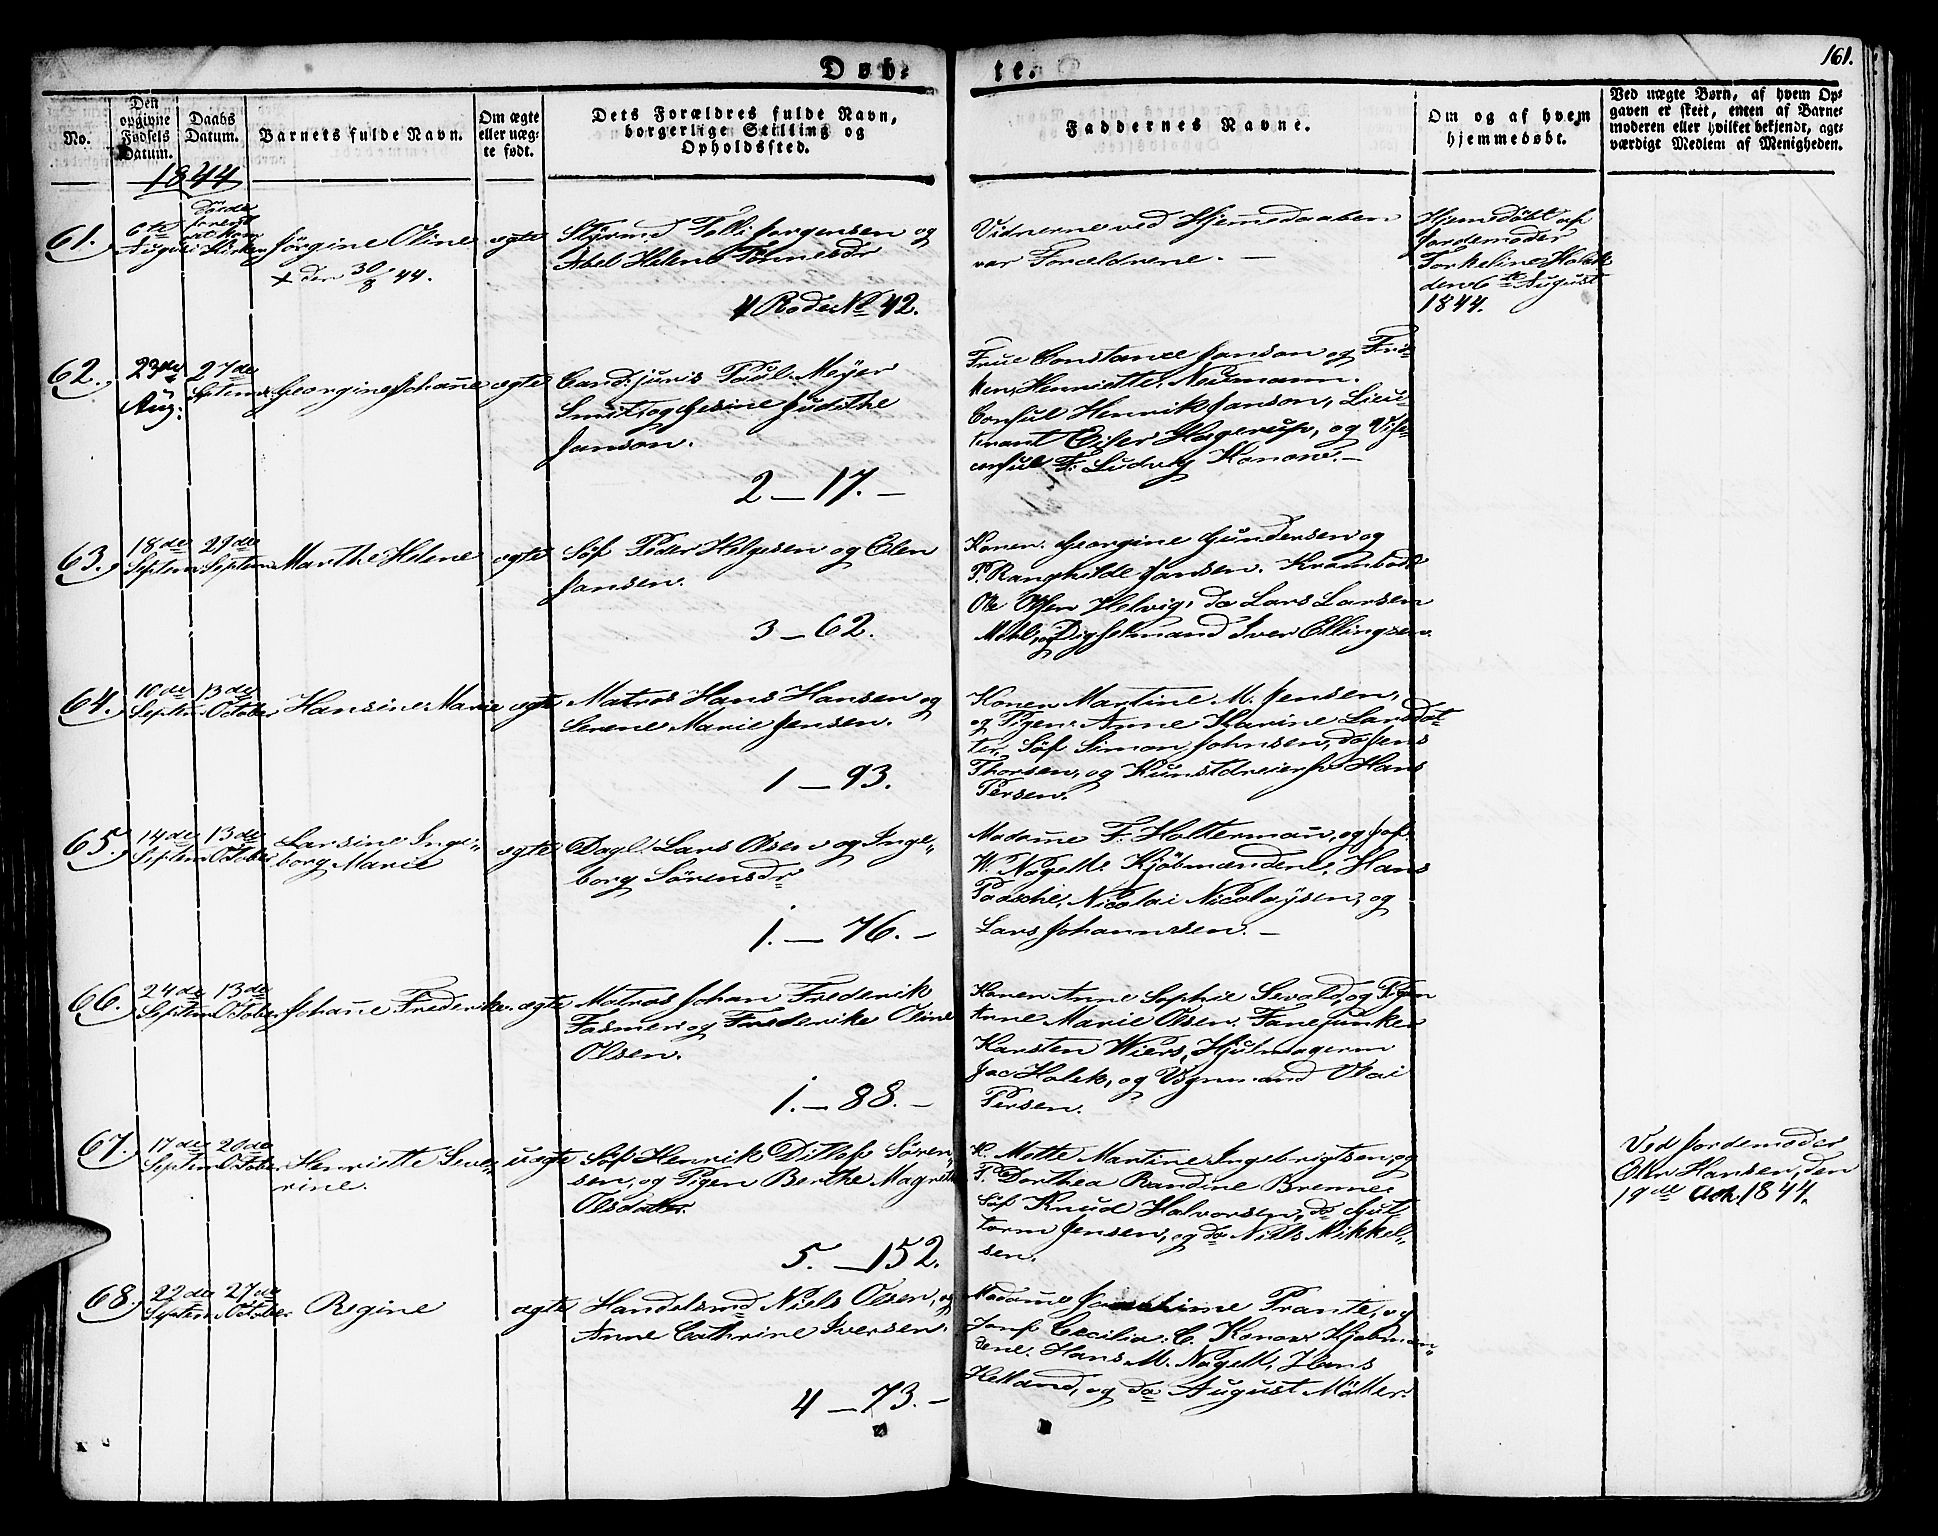 Døb-
te.
161.
No.
Den
opgivne
Fødsels
Datum.
Daabs
Datum.
Barnets fulde Navn.
Om ægte
eller uæg-
te født.
Dets Forældres fulde Navn,
borgerlige Stilling og
Opholdssted.
Faddernes Navne.
Om og af hvem
hjemmedøbt.
Ved uægte Børn, af hvem Op-
gaven er skeet, enten af Barne-
moderen eller hvilket bekjendt, agt-
værdigt Medlem af Menigheden.
1844
61.
6te
August
Døde
Kirken
Jørgine Oline
+ den 30/8 44.
ægte
Styrmd Tolli Jørgensen og
Abel Helene Tønnesdr
4 Rode No 42.
Vidnerne ved Hjemedaaben
var Forældrene. —
Hjemedøbt af
Jordemoder
Torkeline Holck
den 6te August
1844.
62.
23de
Aug:
27de
Septemb
Georgine Johanne
ægte
Cand: juris Paul Meyer
Smit og Gesine Judithe
Janson.
2 — 17. —
Frue Constance Janson og Frø-
ken Henriette Neumann.
Consul Henrik Janson, Lieu-
tenant Eiler Hagerup, og Vise-
consul F: Ludvig Konow. —
63.
18de
Septem
29de
Septem
Marthe Helene
ægte
Søf Peder Helgesen og Elen
Jansen.
3 — 62.
Konen Georgine Gundersen og
P. Ranghilde Jansen. Krambodk
Ole Olsen Helvig, do Lars Larsen
Mehl, og Digselmand Iver Ellingsen.
64.
10de
Septem
13de
October
Hansine Marie
ægte
Matros Hans Hansen og
Serene Marie Jensen.
1 — 93.
Konen Martine M. Jensen,
og Pigen Anne Karine Larsdot-
ter, Søf Simon Johnsen, do Jens
Thorsen, og Kunstdreiersv Hans
Persen.
65.
14de
Septem
13de
October
Larsine Inge-
borg Marie
ægte
Dagl. Lars Olsen og Inge-
borg Sørensdr
1. — 76. —
Madame F. Holtermann, og Jof.
W. Nagell. Kjøbmændene, Hans
Paasche, Nicolai Nicolaysen, og
Lars Johannesen. —
66.
24de
Septem
13de
October
Johanne Frederike.
ægte
Matros Johan Frederik
Fasmer og Frederike Oline
Olsen.
1. — 88. —
Konen Anne Sophie Sevold, og Pigen
Anne Marie Olsen. Fanejunker
Karsten Wiers, Hjulmagerm
Jac Holck, og Vognmand Olai
Persen.
67.
17de
Septem
20de
October
Henriette Seve-
rine.
uægte
Søf Henrik Ditlef Søren-
sen, og Pigen Berthe Magrethe
Olsdatter.
5. — 152.
K. Mette Martine Ingebrigtsen, og
P. Dorthea Randine Brenne.
Søf Knud Halvorsen, do Gut-
torm Jensen, og do Niels Mikkel-
sen.
Ved Jordemoder
Hansen, den
19de Oct. 1844.
68.
22de
Septem
27de
October
Regine
ægte
Handelsmd Niels Olsen, og
Anne Cathrine Iversen.
4 — 73. —
Madame Joachime Prante, og
Jomf Cecilia C. Konow. Kjøbmæn-
dene. Hans M. Nagell, Hans
Helland, og do August Møller.